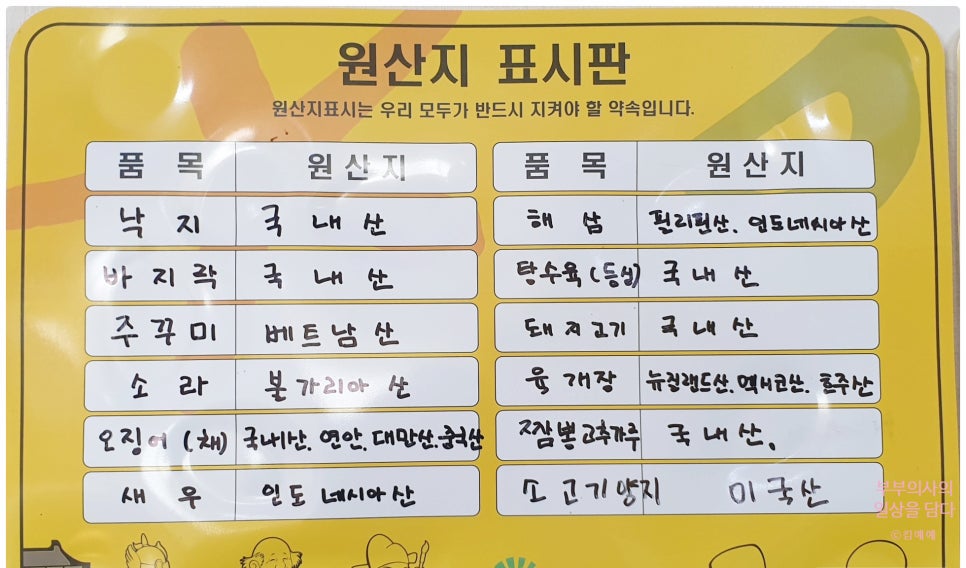 원산지 표시판
원산지표시는 우리 모두가 반드시 지켜야 할 약속입니다.
품 목 원산지
낙 지 국 내 산
바 지 락 국 내 산
주 꾸 미 베트남 산
소 라 불가리아 산
오징어 (채) 국내산. 연안. 대만산.중국산
새 우 인도네시아산
품 목 원산지
해 삼 필리핀산. 인도네시아산
탕수육(등심) 국 내 산
돼지고기 국 내 산
육 개 장 뉴질랜드산.멕시코산. 호주산
짬뽕고추가루 국 내 산.
소고기양지 미국산
부부의사의
일상을 담다
ⓒ킴예예